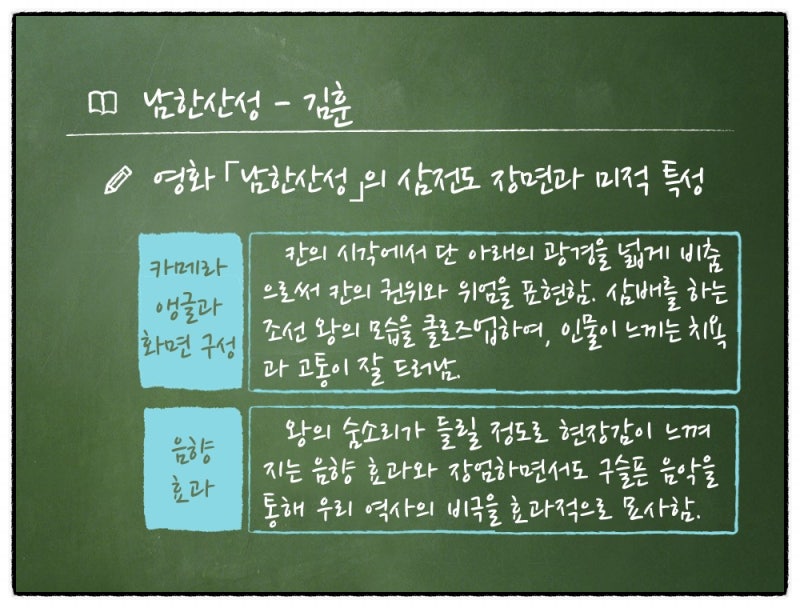 남한산성 - 김훈
영화 「남한산성」의 삼전도 장면과 미적 특성
카메라
앵글과
화면 구성
칸의 시각에서 단 아래의 광경을 넓게 비춤
으로써 칸의 권위와 위엄을 표현함. 삼배를 하는
조선 왕의 모습을 클로즈업하여, 인물이 느끼는 치욕
과 고통이 잘 드러남.
음향
효과
왕의 숨소리가 들릴 정도로 현장감이 느껴
지는 음향 효과와 장엄하면서도 구슬픈 음악을
통해 우리 역사의 비극을 효과적으로 묘사함.